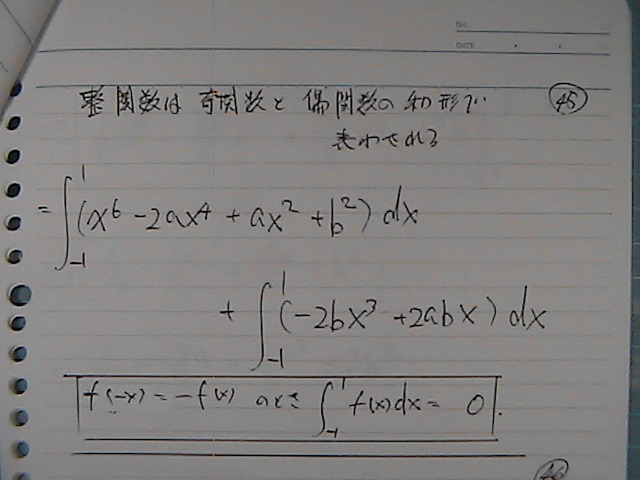 No.
DATE
整関数は 奇関数と 偶関数の 和の形で
㊺
表わされる
= ∫_{-1}^{1} (x^6 - 2ax^4 + ax^2 + b^2) dx
+ ∫_{-1}^{1} (-2bx^3 + 2abx) dx
f(-x) = -f(x) のとき ∫_{-1}^{1} f(x)dx = 0.